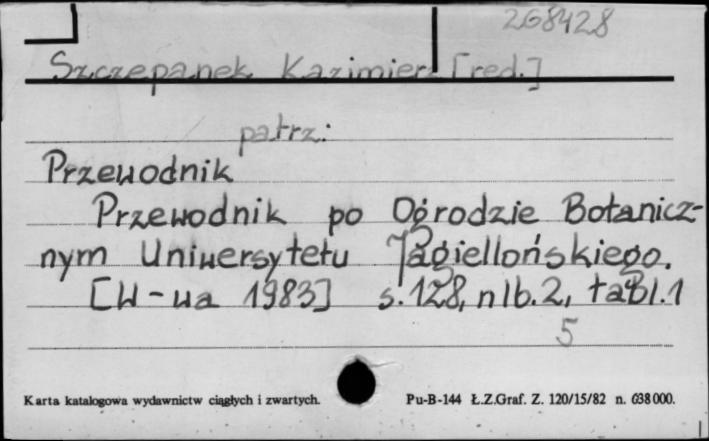 268428
Szczepanek Kazimierz [red.]
patrz:
Przewodnik
Przewodnik po Ogrodzie Botanicz-
nym Uniwersytetu Jagiellońskiego.
[W-wa 1983] s. 128, nlb. 2, tabl. 1
5
Karta katalogowa wydawnictw ciągłych i zwartych.
Pu-B-144 Ł.Z.Graf. Z. 120/15/82 n. 638000.